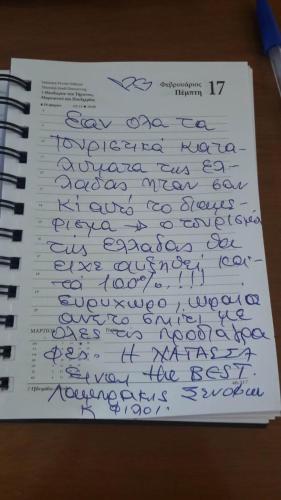 Φεβρουάριος 17
Πέμπτη
Εαν ολα τα
τουριστικά κατα-
λυματα της Ελ-
λαδας ηταν σαν
κι αυτό το διαμε-
ρισμα → ο τουρισμό
της Ελλαδας θα
ειχε αυξηθεί κα-
τα 100% !!!!
Ευρυχωρο, ωραιο
ανετο σπιτι με
ολες τις προδιαγρα
φες. Η ΝΑΤΑΣΣΑ
Ειναι the BEST.
Λαμπρακις Ξενοφων
κ φιλοι.